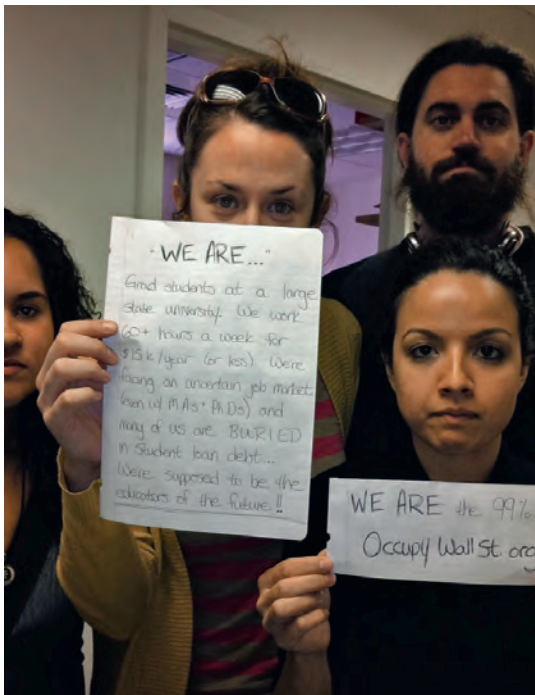 - WE ARE..."
Grad students at a large
state university. We work
60+ hours a week for
$15k/year (or less). We're
facing an uncertain job market
(even w/ MAs + PhDs) and
many of us are BURIED
in student loan debt...
We're supposed to be the
educators of the future!!
WE ARE the 99%
OccupyWallSt.org